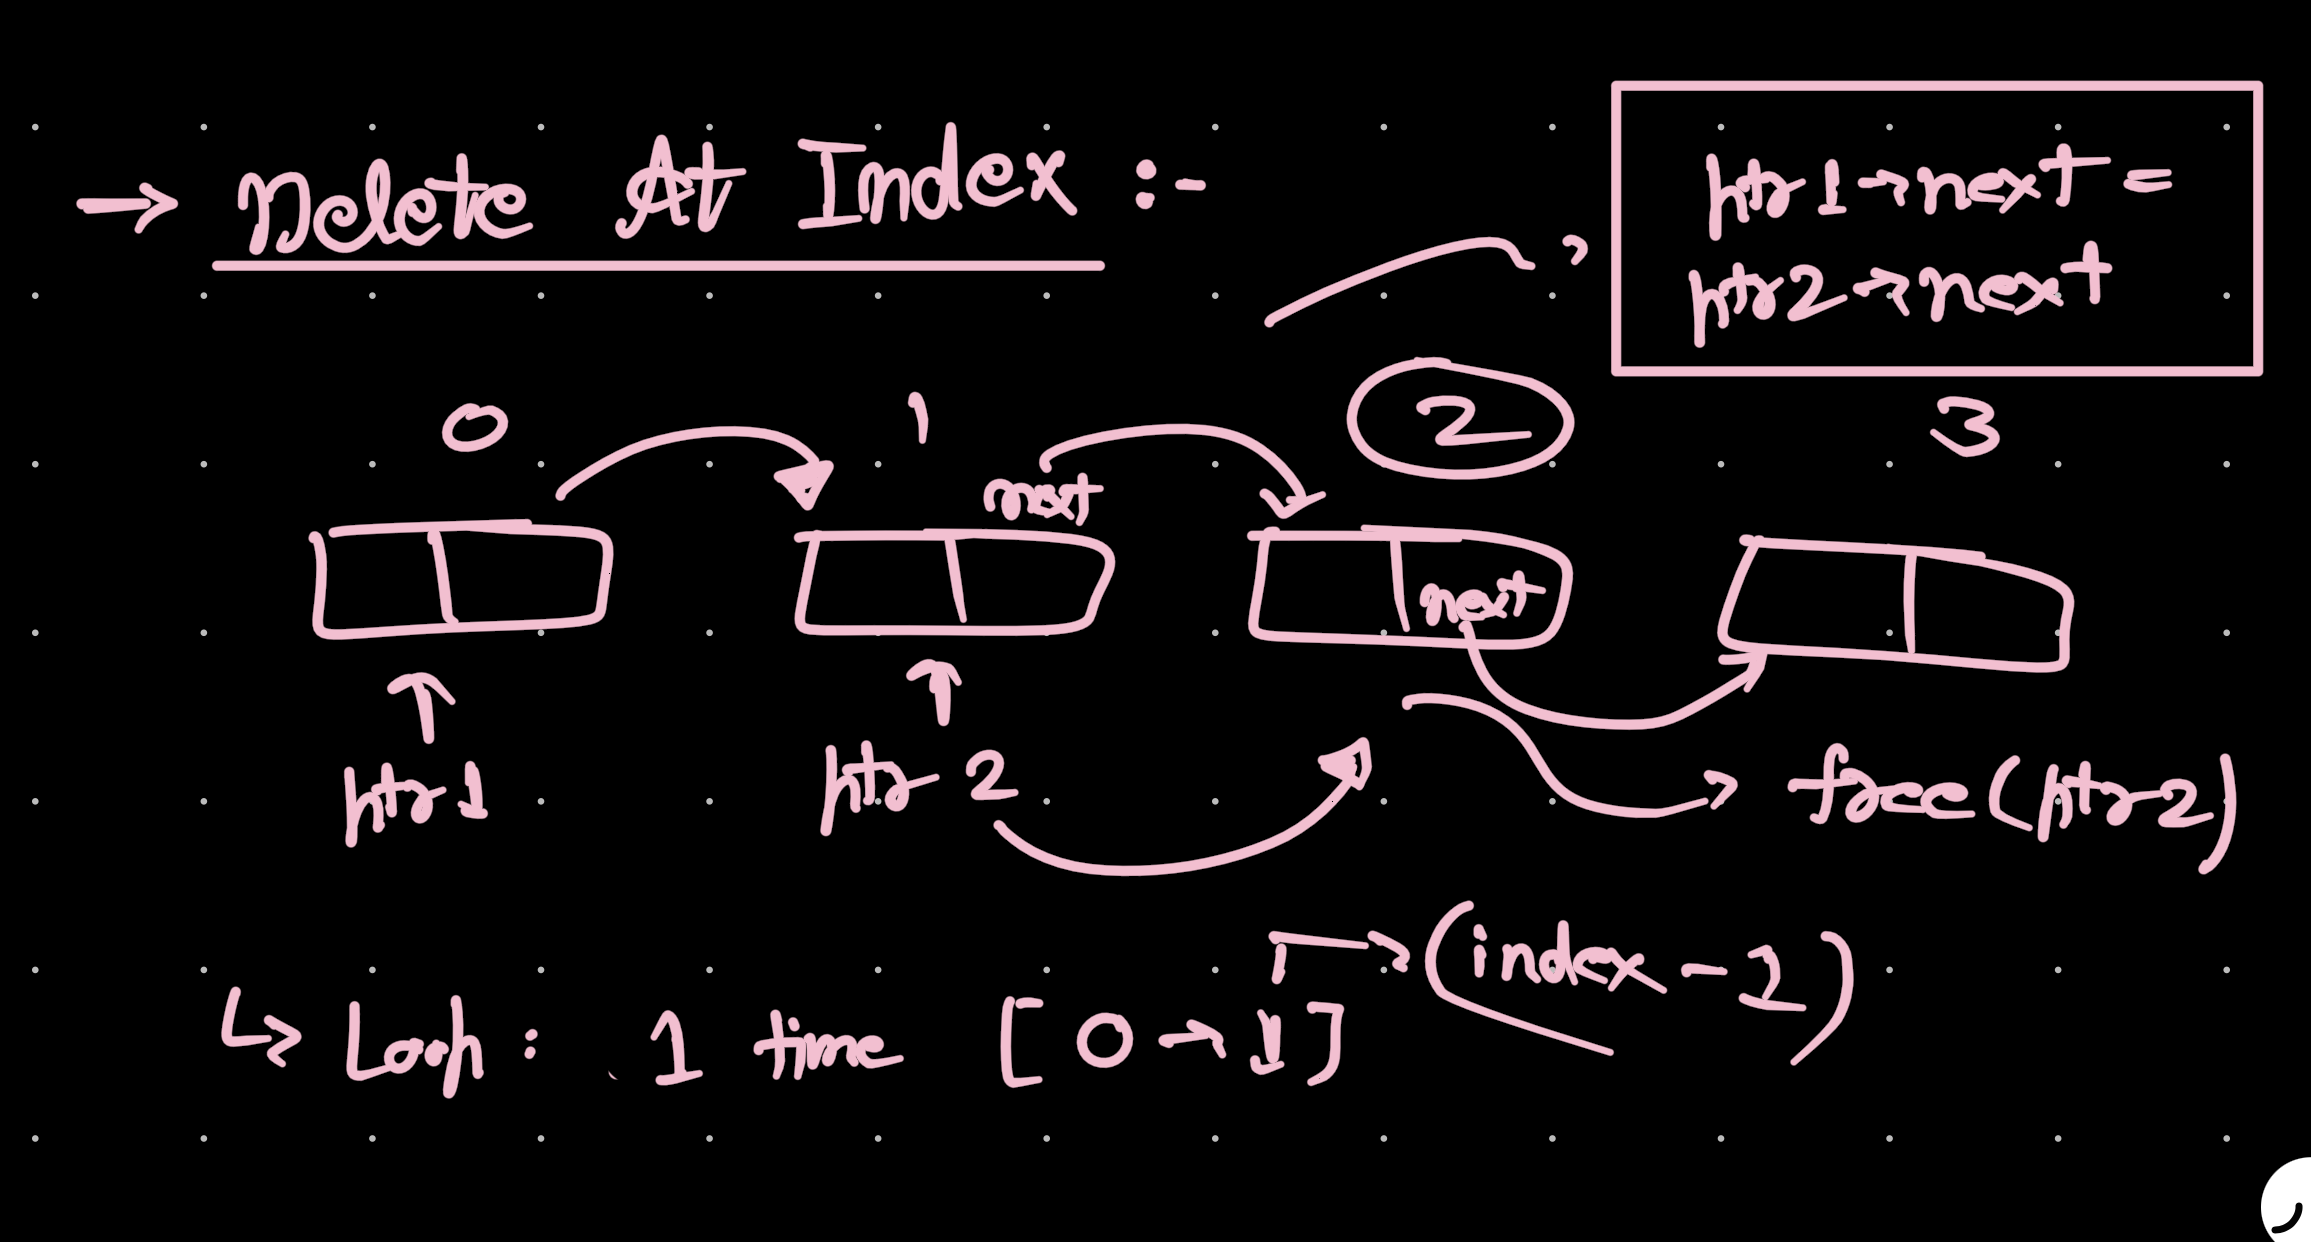 → Delete At Index :-
ptr1→next =
ptr2→next
0 1 2 3
next
next
ptr1 ptr2
free(ptr2)
(index-2)
↳ Loop : 1 time [0→1]